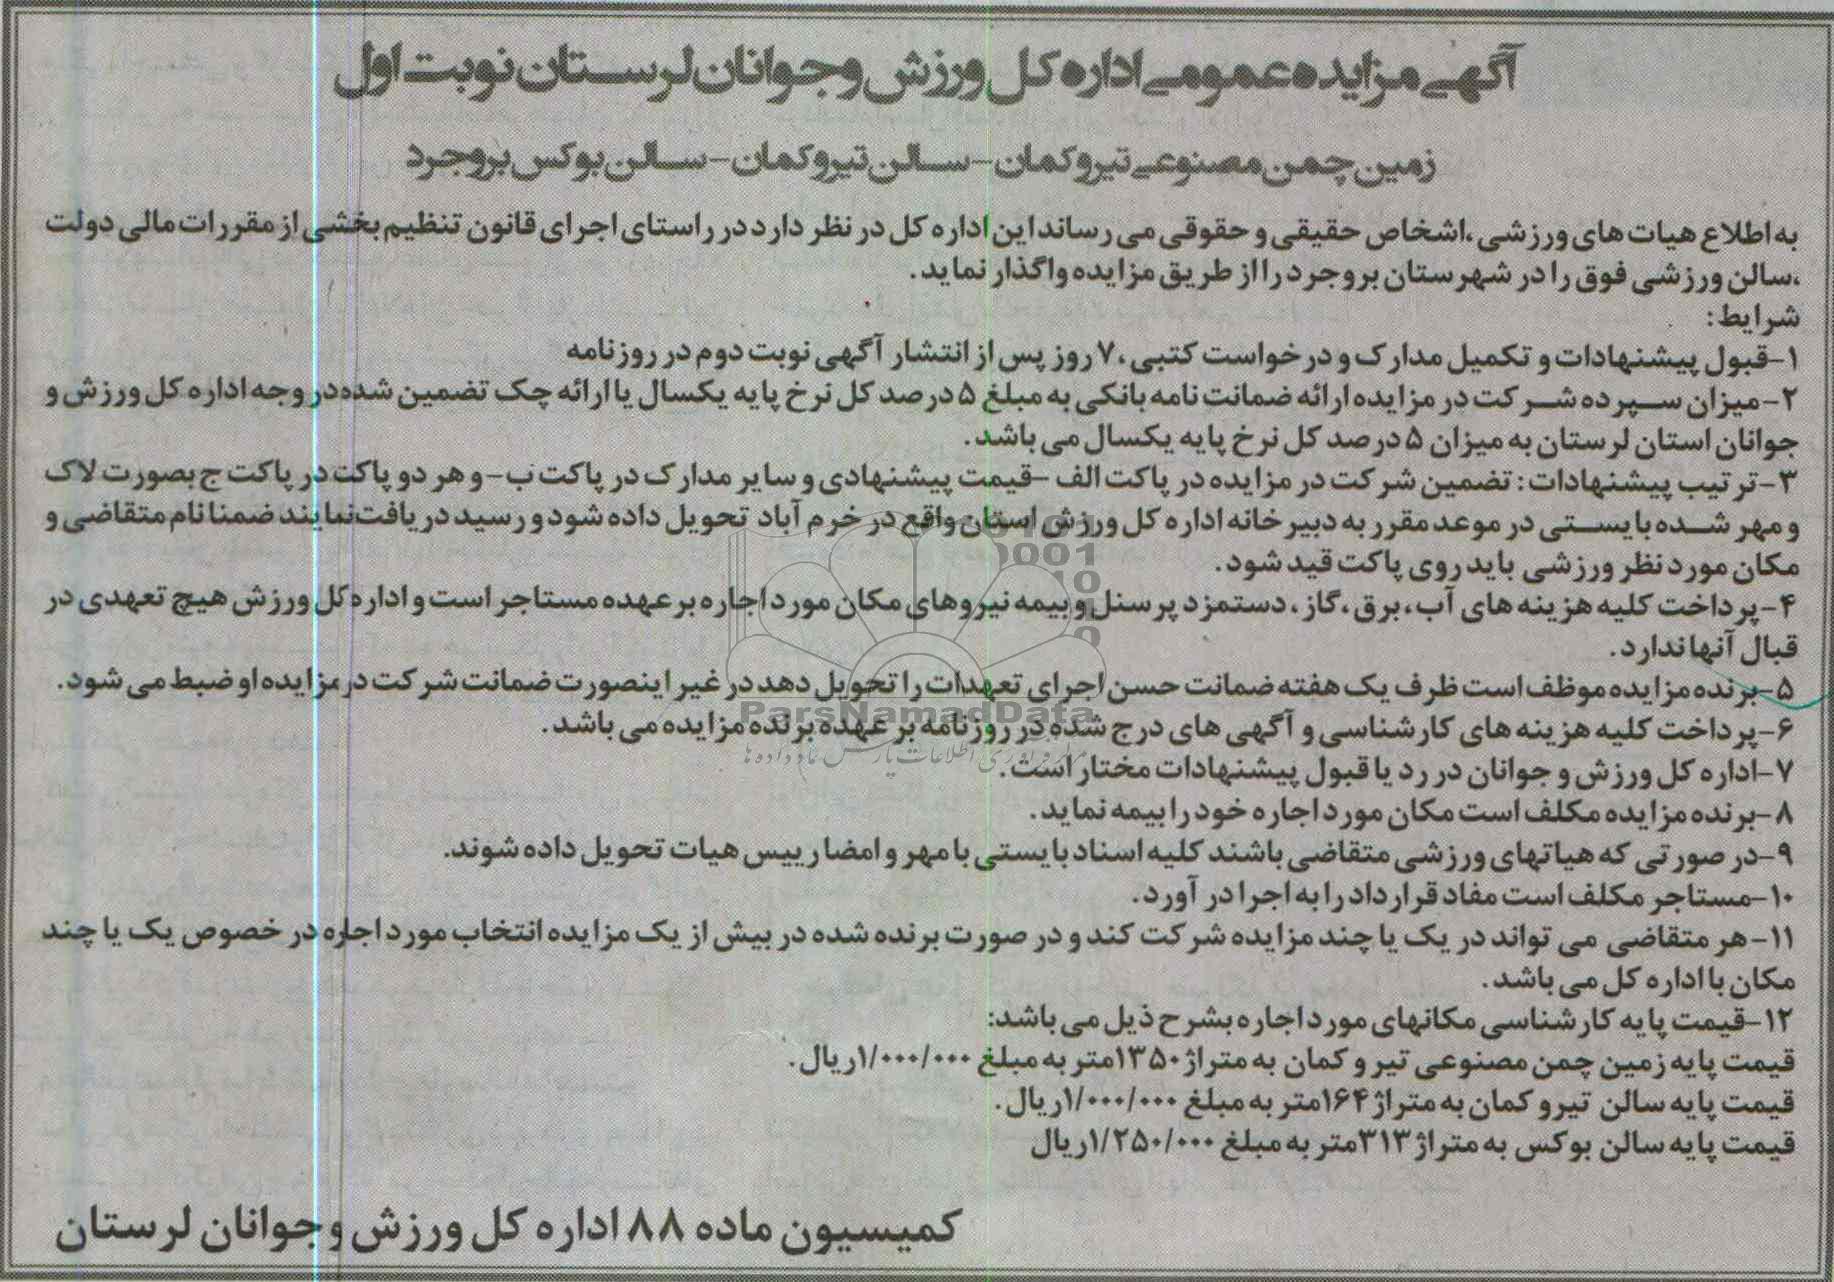 آگهی مزایده عمومی اداره کل ورزش و جوانان لرستان نوبت اول
زمین چمن مصنوعی تیروکمان - سالن تیروکمان - سالن بوکس بروجرد
به اطلاع هیات های ورزشی ،اشخاص حقیقی و حقوقی می رساند این اداره کل در نظر دارد در راستای اجرای قانون تنظیم بخشی از مقررات مالی دولت
،سالن ورزشی فوق را در شهرستان بروجرد را از طریق مزایده واگذار نماید.
شرایط:
۱-قبول پیشنهادات و تکمیل مدارک و درخواست کتبی ،۷ روز پس از انتشار آگهی نوبت دوم در روزنامه
۲-میزان سپرده شرکت در مزایده ارائه ضمانت نامه بانکی به مبلغ ۵ درصد کل نرخ پایه یکسال یا ارائه چک تضمین شده در وجه اداره کل ورزش و
جوانان استان لرستان به میزان ۵ درصد کل نرخ پایه یکسال می باشد.
۳-ترتیب پیشنهادات: تضمین شرکت در مزایده در پاکت الف -قیمت پیشنهادی و سایر مدارک در پاکت ب- و هر دو پاکت در پاکت ج بصورت لاک
و مهر شده بایستی در موعد مقرر به دبیرخانه اداره کل ورزش استان واقع در خرم آباد تحویل داده شود و رسید دریافت نمایند ضمنا نام متقاضی و
مکان مورد نظر ورزشی باید روی پاکت قید شود.
۴-پرداخت کلیه هزینه های آب، برق، گاز، دستمزد پرسنل و بیمه نیروهای مکان مورد اجاره بر عهده مستاجر است و اداره کل ورزش هیچ تعهدی در
قبال آنها ندارد.
۵-برنده مزایده موظف است ظرف یک هفته ضمانت حسن اجرای تعهدات را تحویل دهد در غیر اینصورت ضمانت شرکت در مزایده او ضبط می شود.
۶-پرداخت کلیه هزینه های کارشناسی و آگهی های درج شده در روزنامه بر عهده برنده مزایده می باشد.
۷-اداره کل ورزش و جوانان در رد یا قبول پیشنهادات مختار است.
۸-برنده مزایده مکلف است مکان مورد اجاره خود را بیمه نماید.
۹-در صورتی که هیاتهای ورزشی متقاضی باشند کلیه اسناد بایستی با مهر و امضا رییس هیات تحویل داده شوند.
۱۰-مستاجر مکلف است مفاد قرارداد را به اجرا در آورد.
۱۱-هر متقاضی می تواند در یک یا چند مزایده شرکت کند و در صورت برنده شده در بیش از یک مزایده انتخاب مورد اجاره در خصوص یک یا چند
مکان با اداره کل می باشد.
۱۲-قیمت پایه کارشناسی مکانهای مورد اجاره بشرح ذیل می باشد:
قیمت پایه زمین چمن مصنوعی تیر و کمان به متراژ ۱۳۵۰متر به مبلغ ۱/۰۰۰/۰۰۰ریال.
قیمت پایه سالن تیرو کمان به متراژ ۱۶۴متر به مبلغ ۱/۰۰۰/۰۰۰ریال.
قیمت پایه سالن بوکس به متراژ ۳۱۳متر به مبلغ ۱/۲۵۰/۰۰۰ریال
کمیسیون ماده ۸۸ اداره کل ورزش و جوانان لرستان
ParsNamadData